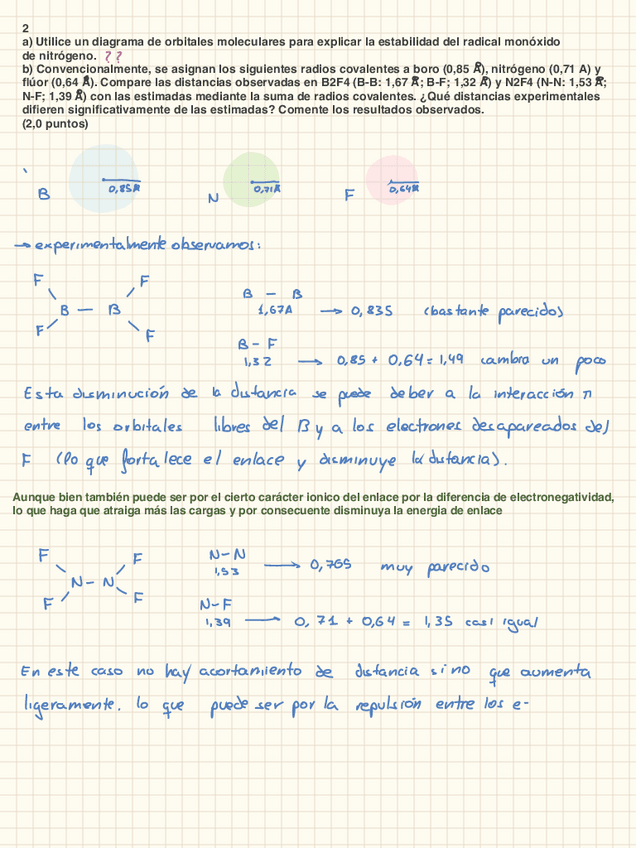 2
a) Utilice un diagrama de orbitales moleculares para explicar la estabilidad del radical monóxido
de nitrógeno. ??
b) Convencionalmente, se asignan los siguientes radios covalentes a boro (0,85 Å), nitrógeno (0,71 A) y
flúor (0,64 Å). Compare las distancias observadas en B2F4 (B-B: 1,67 Å; B-F; 1,32 Å) y N2F4 (N-N: 1,53 Å;
N-F; 1,39 Å) con las estimadas mediante la suma de radios covalentes. ¿Qué distancias experimentales
difieren significativamente de las estimadas? Comente los resultados observados.
(2,0 puntos)
B 0,85Å N 0,71Å F 0,64Å
→ experimentalmente observamos:
F F
B — B
F F
B — B
1,67A → 0,835 (bastante parecido)
B - F
1,32 → 0,85 + 0,64 = 1,49 cambia un poco
Esta disminución de la distancia se puede deber a la interacción π
entre los orbitales libres del B y a los electrones desapareados del
F (lo que fortalece el enlace y disminuye la distancia).
Aunque bien también puede ser por el cierto carácter ionico del enlace por la diferencia de electronegatividad,
lo que haga que atraiga más las cargas y por consecuente disminuya la energia de enlace
F F
N - N
F F
N-N
1,53 → 0,765 muy parecido
N-F
1,39 → 0,71 + 0,64 = 1,35 casi igual
En este caso no hay acortamiento de distancia sino que aumenta
ligeramente. lo que puede ser por la repulsión entre los e-